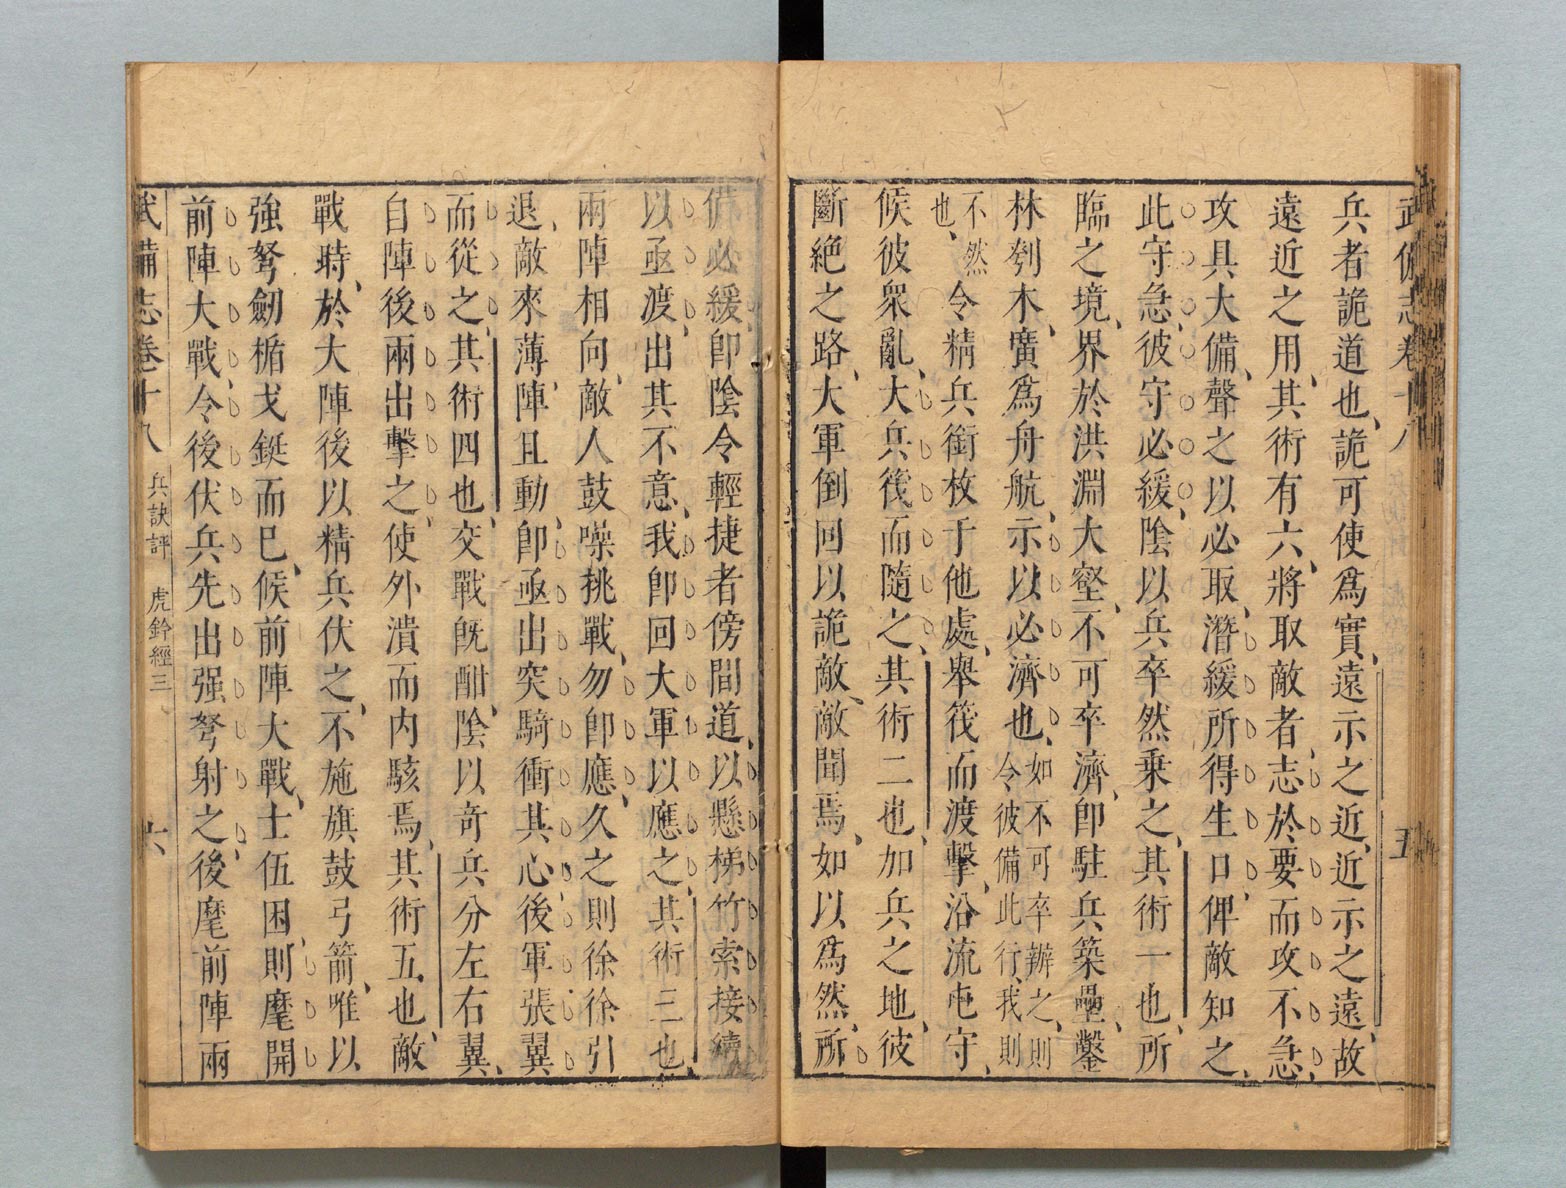 武備志卷十八
五
兵者詭道也詭可使爲實遠示之近近示之遠故
遠近之用其術有六將取敵者志於要而攻不急
攻具大備聲之以必取潛緩所得生口俾敵知之
此守急彼守必緩陰以兵卒然乗之其術一也所
臨之境界於洪淵大壑不可卒濟卽駐兵築壘鑿
林刳木廣爲舟航示以必濟也如不可卒辦之則令彼備此行我則
不然也令精兵銜枚于他處舉筏而渡擊沿流屯守
候彼衆亂大兵筏而隨之其術二也加兵之地彼
斷絶之路大軍倒回以詭敵敵聞焉如以爲然所
備必緩卽陰令輕捷者傍間道以懸梯竹索接續
以亟渡出其不意我卽回大軍以應之其術三也
兩陣相向敵人鼓噪挑戰勿卽應久之則徐徐引
退敵來薄陣陣且動卽亟出突騎衝其心後軍張翼
而從之其術四也交戰旣酣陰以竒兵分左右翼
自陣後兩出擊之使外潰而内駭焉其術五也敵
戰時於大陣後以精兵伏之不施旗鼓弓箭唯以
強弩劒楯戈鋋而巳候前陣大戰士伍困則麾開
前陣大戰令後伏兵先出强弩射之後麾前陣兩
武備志卷十八 兵訣評 虎鈐經三
六